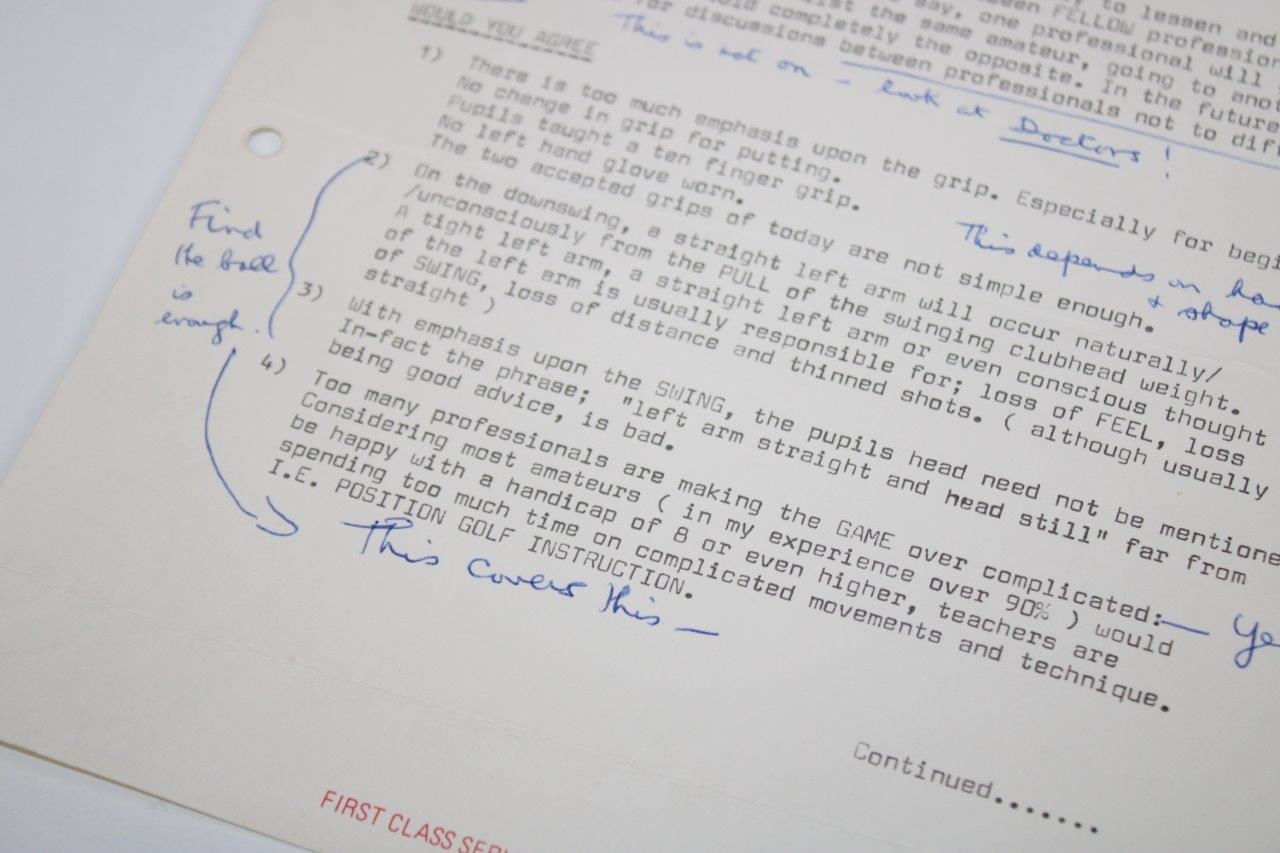 to lessen and
een FELLOW profession
say, one professional will
st the same amateur, going to anot
old completely the opposite. In the future
for discussions between professionals not to diff
This is not on - look at Doctors!
WOULD YOU AGREE
1) There is too much emphasis upon the grip. Especially for begi
No change in grip for putting.
Pupils taught a ten finger grip.
No left hand glove worn.
The two accepted grips of today are not simple enough.
This depends on ha
& shape
2) On the downswing, a straight left arm will occur naturally/
/unconsciously from the PULL of the swinging clubhead weight.
A tight left arm, a straight left arm or even conscious thought
of the left arm is usually responsible for; loss of FEEL, loss
of SWING, loss of distance and thinned shots. ( although usually
straight )
Find
the ball
is
enough.
3) With emphasis upon the SWING, the pupils head need not be mentione
In-fact the phrase; "left arm straight and head still" far from
being good advice, is bad.
4) Too many professionals are making the GAME over complicated:
Considering most amateurs ( in my experience over 90% ) would
be happy with a handicap of 8 or even higher, teachers are
spending too much time on complicated movements and technique.
I.E. POSITION GOLF INSTRUCTION.
Ye
This covers this -
Continued.......
FIRST CLASS SER